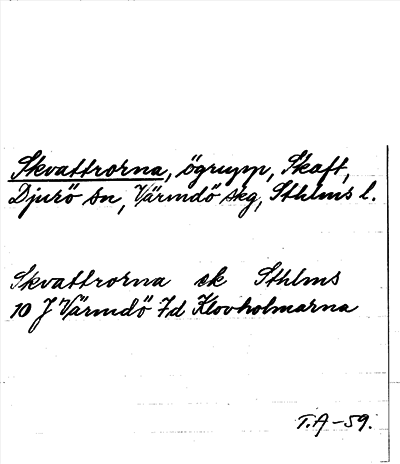 Skvattrorna, ögrupp, Skaft,
Djurö sn, Värmdö skg, Sthlms l.
Skvattrorna ek Sthlms
10 J Värmdö 7d Klovholmarna
T.A -59.